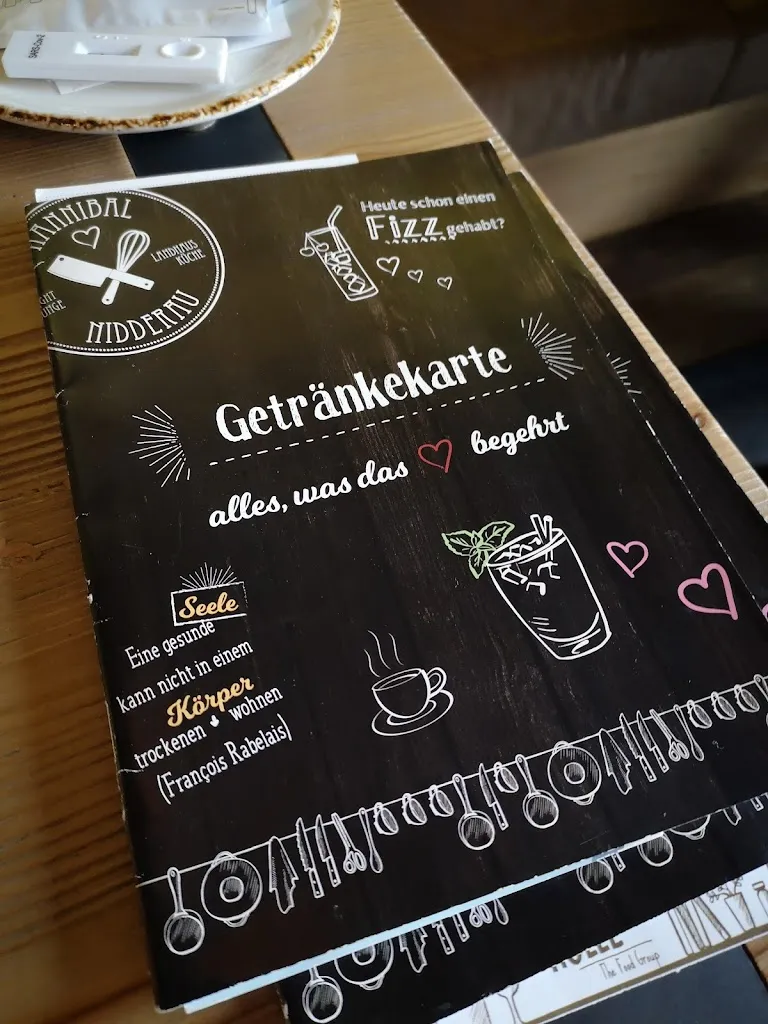 SARS-CoV-2
HANNIBAL
LANDHAUS
KÜCHE
NIDDERAU
Heute schon einen
Fizz gehabt?
Getränkekarte
alles, was das begehrt
Eine gesunde
Seele
kann nicht in einem
trockenen
Körper
wohnen
(François Rabelais)
The Food Group